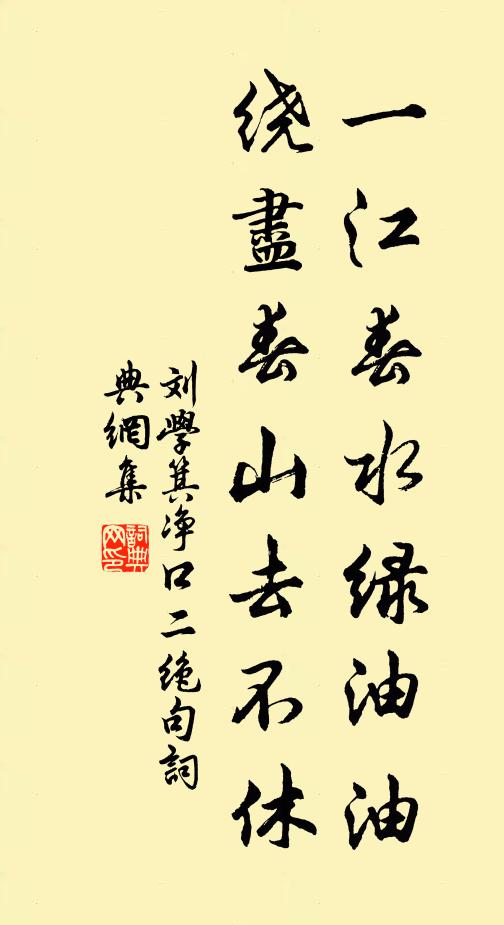 一江春水绿油油
绕盡春山去不休
刘學箕净口二绝句詞
典網集
詞典
网印